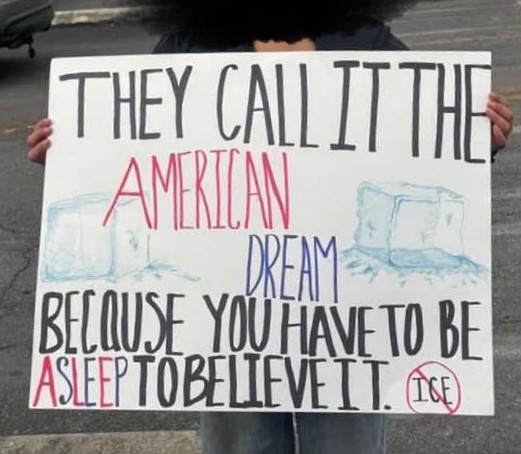 THEY CALL IT THE
AMERICAN
DREAM
BECAUSE YOU HAVE TO BE
ASLEEP TO BELIEVE IT.
ICE